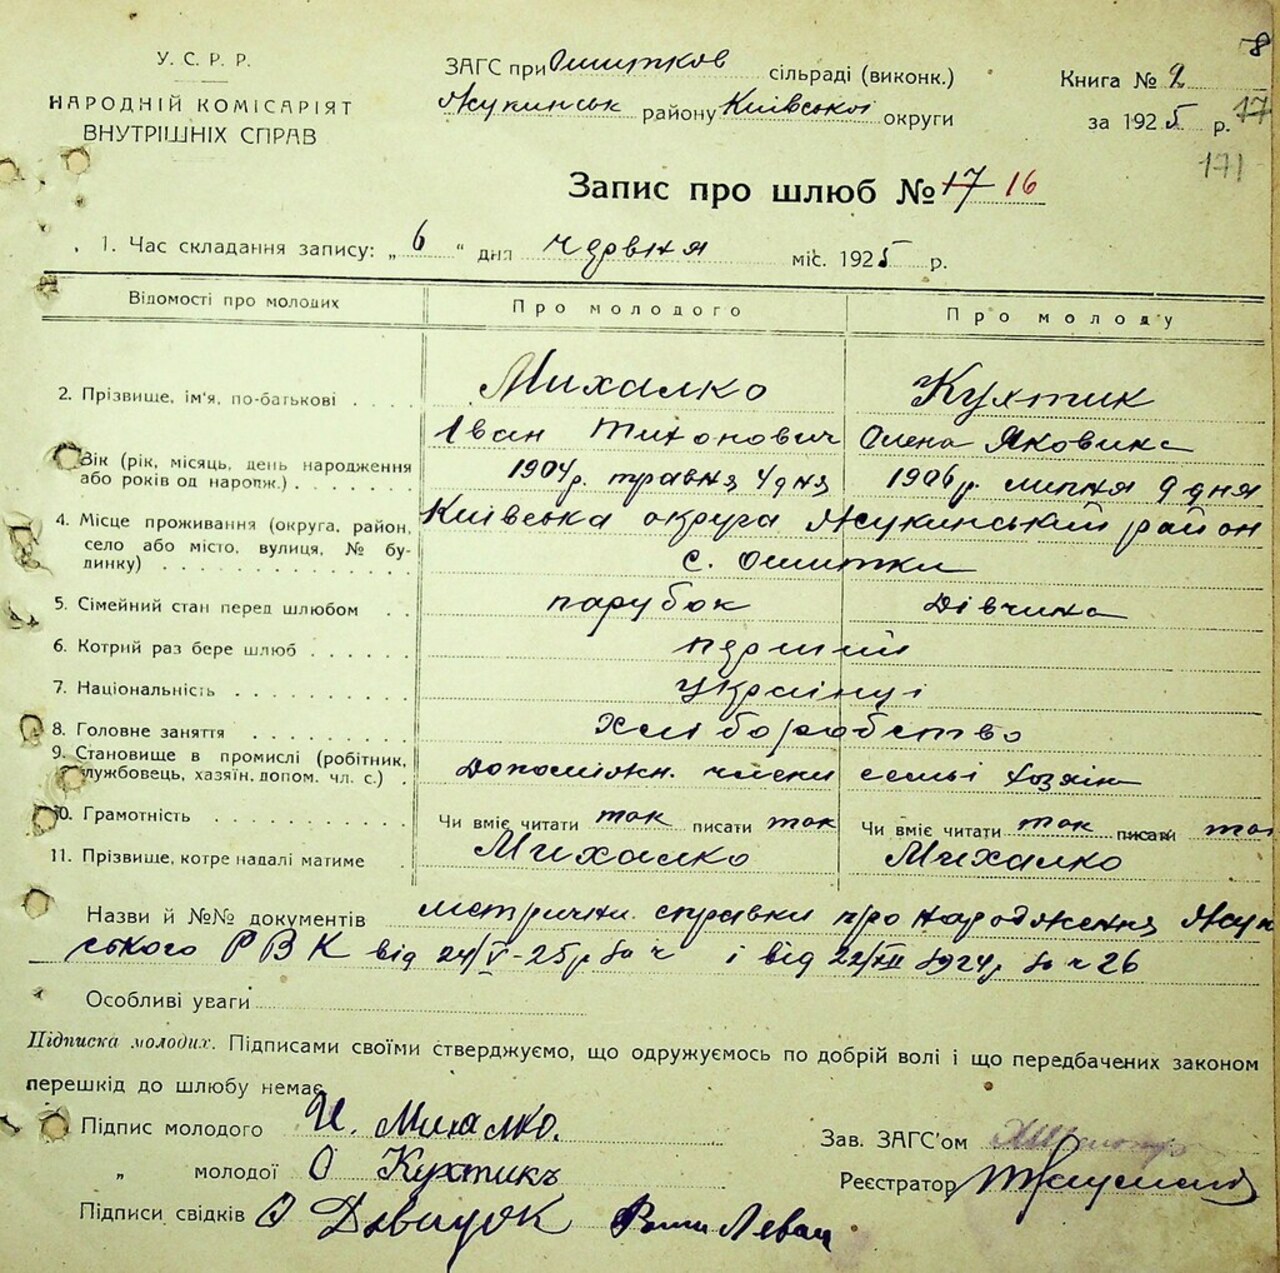 8
У. С. Р. Р.
НАРОДНІЙ КОМІСАРІЯТ
ВНУТРІШНІХ СПРАВ
ЗАГС при Ошитков сільраді (виконк.)
Жукинськ району Київської округи
Книга № 2
за 1925 р. 17
171
Запис про шлюб № 17 16
1. Час складання запису: „ 6 “ дня червня міс. 1925 р.
Відомості про молодих Про молодого Про молоду
2. Прізвище, ім'я, по-батькові . . . . Михалко Кухтик
Іван Тихонович Олена Яковивна
Вік (рік, місяць, день народження
або років од нарордж.) . . . . . . 1904 р. травня 4 дня 1906 р. липня 9 дня
4. Місце проживання (округа, район,
село або місто, вулиця, № бу-
динку) . . . . . . . . . . . . Київська округа Жукинський район
с. Ошитки
5. Сімейний стан перед шлюбом . . парубок Дівчина
6. Котрий раз бере шлюб . . . . . . перший
7. Національність . . . . . . . . . . українці
8. Головне заняття . . . . . . . . . хліборобство
9. Становище в промислі (робітник,
службовець, хазяїн, допом. чл. с.) . Допоміжн. члени семьі хозяін
10. Грамотність . . . . . . . . . . . Чи вміє читати так писати так Чи вміє читати так писати так
11. Прізвище, котре надалі матиме . Михалко Михалко
Назви й №№ документів метричні справки про народження Жукин
ського РВК від 24/V-25 р за ч і від 22/XII 1924 р за ч 26
Особливі уваги
Підписка молодих. Підписами своїми стверджуємо, що одружуємось по добрій волі і що передбачених законом
перешкід до шлюбу немає.
Підпис молодого И. Михалко.
„ молодої О Кухтикъ
Підписи свідків О Давидок Леван
Зав. ЗАГС'ом
Реєстратор